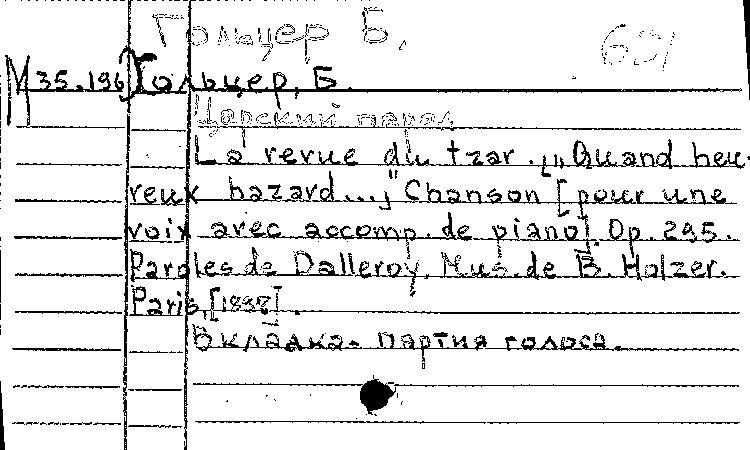 Гольцер Б.
М 35.196 Гольцер, Б.
Царский парад
La revue du tzar. [„Quand heu-
reux hazard...,“ Chanson [pour une
voix avec accomp. de piano]. Op. 295.
Paroles de Dalleroy. Mus. de B. Holzer.
Paris, [1898].
Вкладка - партия голоса.